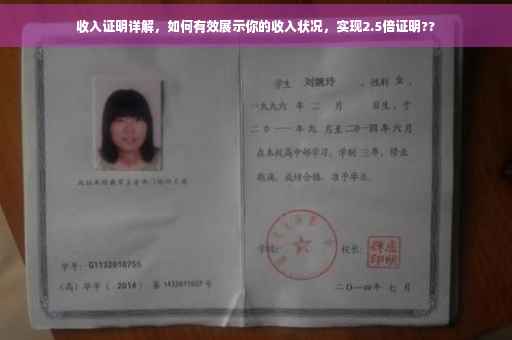 收入证明详解，如何有效展示你的收入状况，实现2.5倍证明??
学生 刘婉玲 ，性别 女 ，
一九九六 年 二 月 日生，于
二〇一一年 九 月至二〇一四年 六 月
在本校高中部学习，学制 三年，修业
期满，成绩合格，准予毕业。
学号：G1132010755
（高）毕字（ 2014 ）第 1432011027 号
学校：
校长：
二〇一四年 七 月